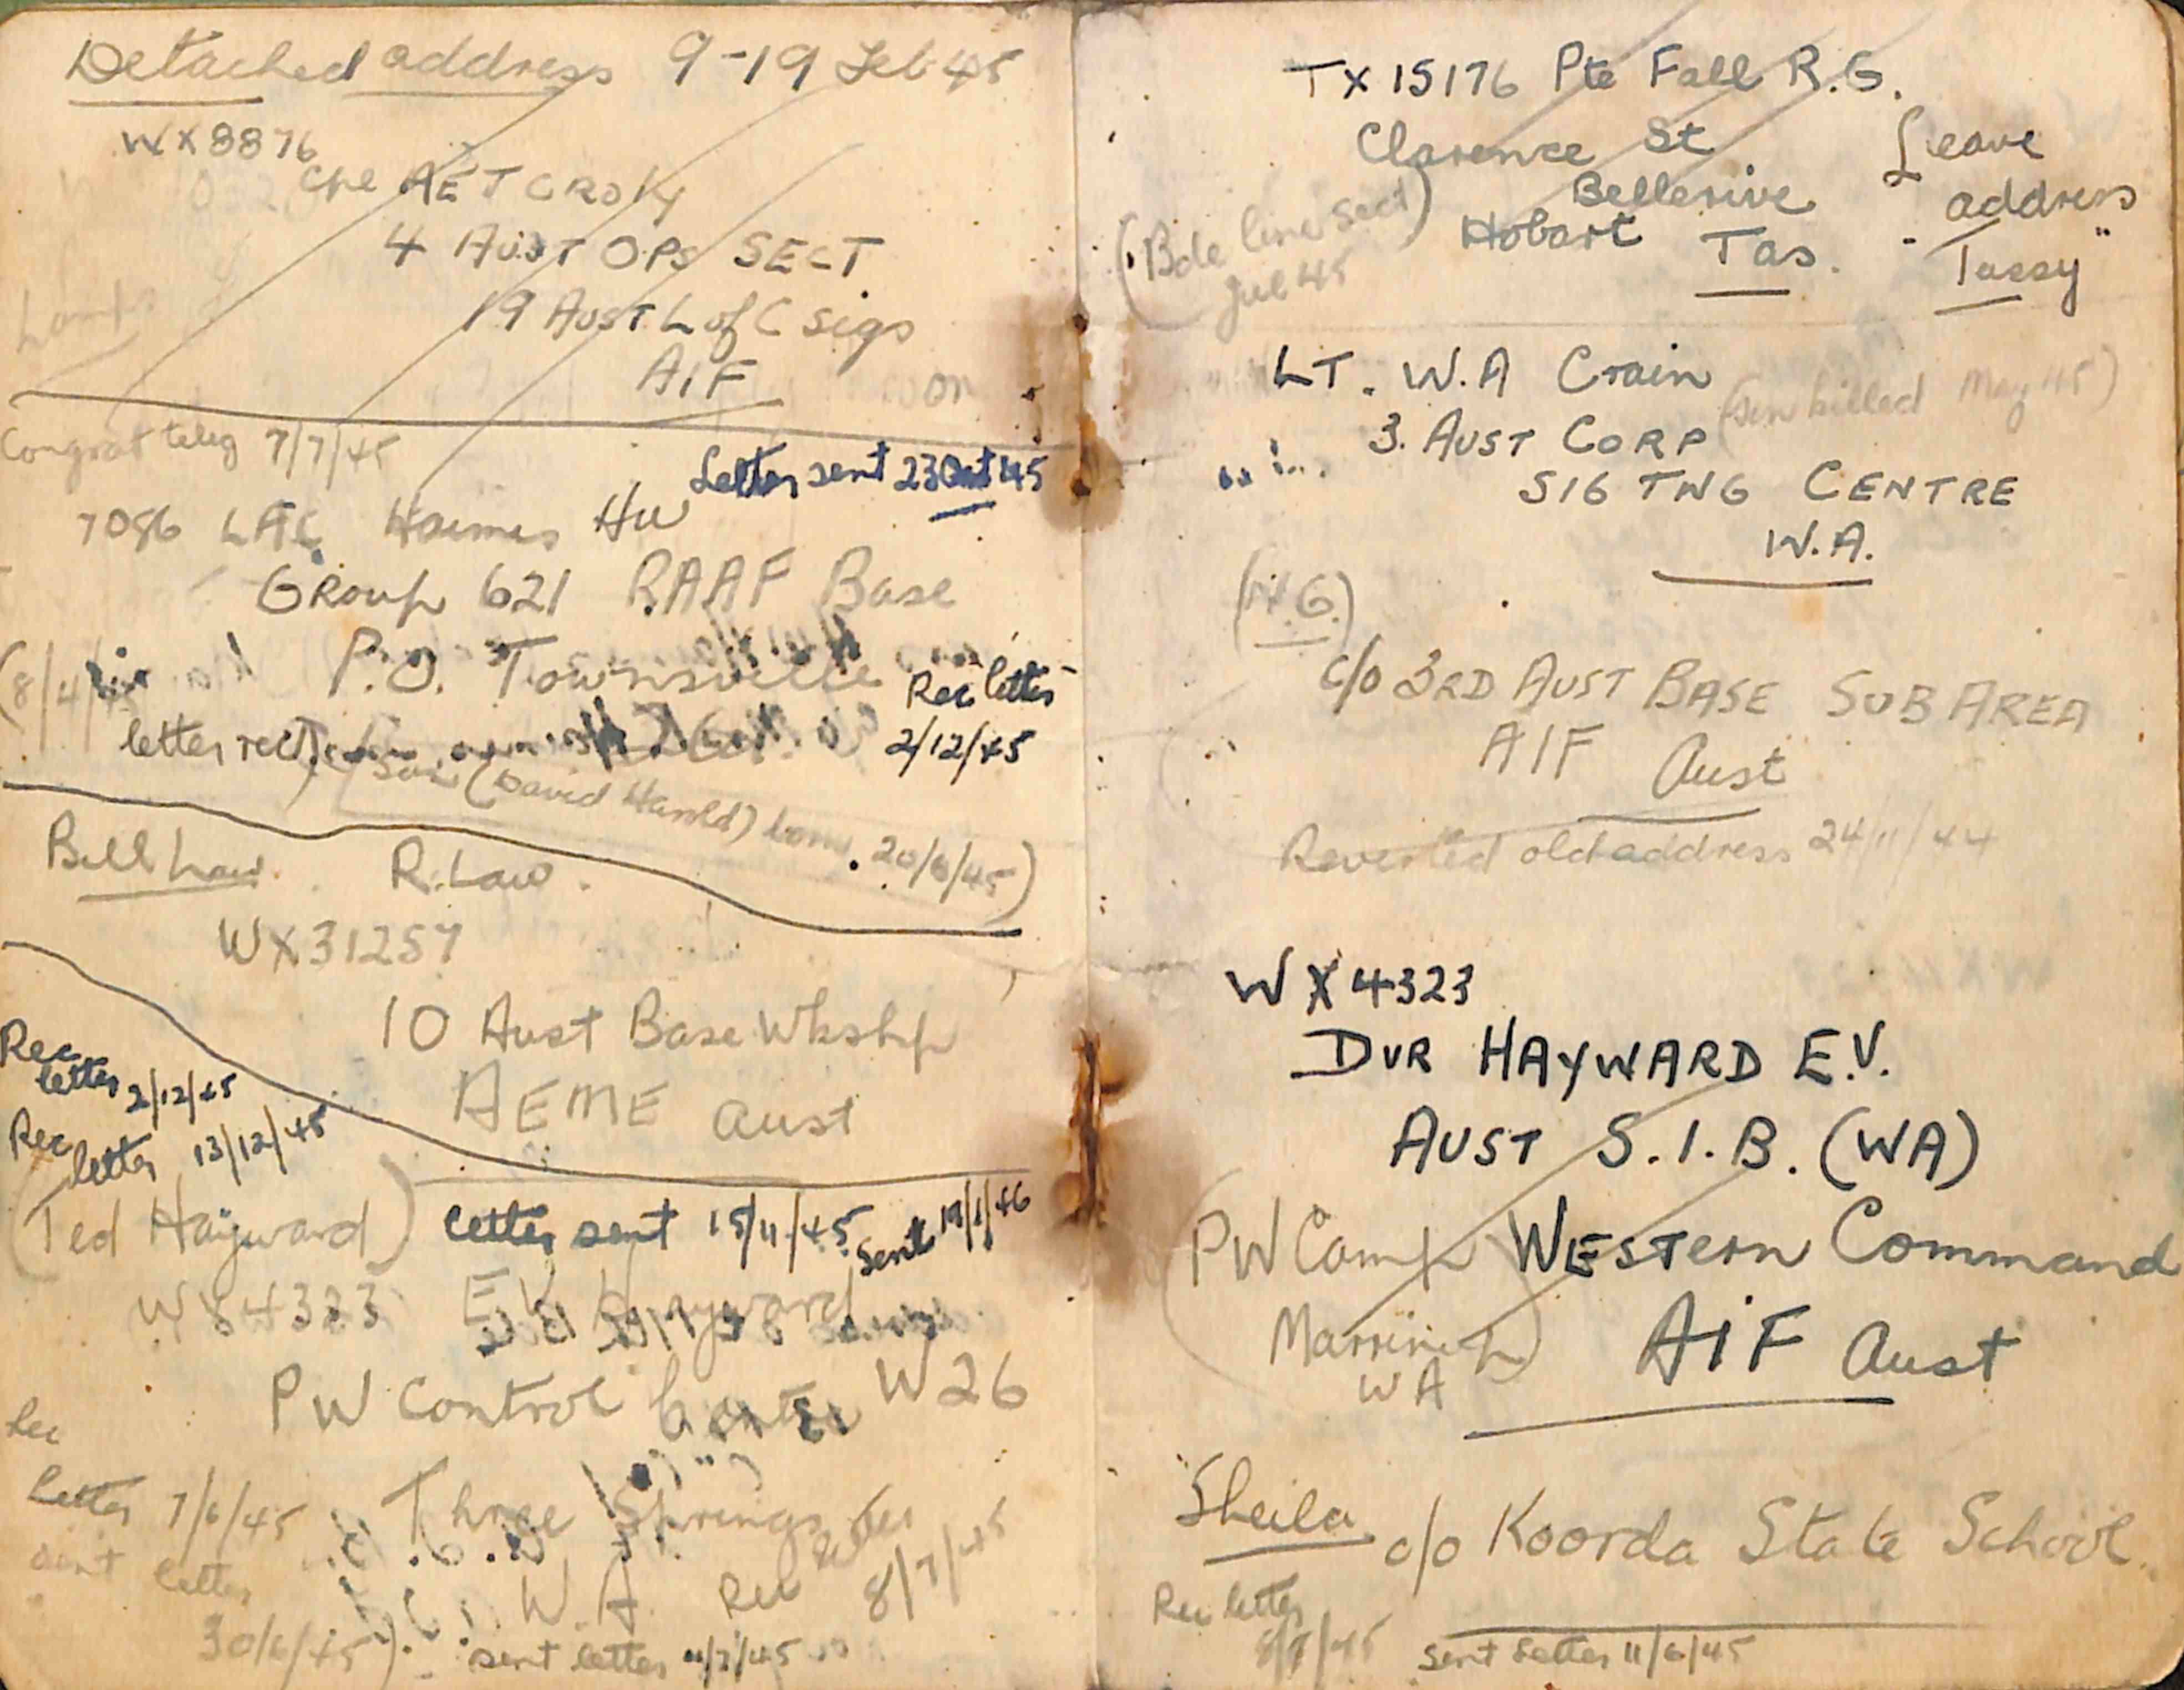 Detached address 9-19 Feb 45
WX8876
Cpl AET CROKY
4 AUST OPS SECT
19 AUST L of C Sigs
AIF
Congrat teleg 7/7/45
Letter sent 23 Oct 45
7086 LAC Haimes HW
GROUP 621 RAAF Base
P.O. Townsville
(8/4/45
Rec letter
2/12/45
letter rec
Son (David Harold) born 20/6/45)
Bill Law R. Law.
WX31257
10 Aust Base Wkshp
AEME Aust
Rec
letter 2/12/45
Rec
letter 13/12/45
(Ted Hayward) letter sent 15/11/45 Sent 19/1/46
WX4323 EV Hayward
PW Control Centre W26
Three Springs
W.A.
Rec
letter 7/6/45
sent letter
30/6/45)
Rec letter
8/7/45
sent letter 11/7/45
TX15176 Pte Fall R.G.
Clarence St
Bellerive
Hobart Tas.
Leave
address
"Tassy"
(Bde line Sect)
Jul 45
LT. W.A Crain
(Son killed May 45)
3. AUST CORP
S16 TNG CENTRE
W.A.
c/o 3RD AUST BASE SUB AREA
AIF Aust
Reverted old address 24/11/44
WX4323
DVR HAYWARD E.V.
AUST S.I.B. (WA)
(PW Camp
Marrinup)
WA
WESTERN Command
AIF Aust
Sheila c/o Koorda State School
Rec letter
sent letter 11/6/45